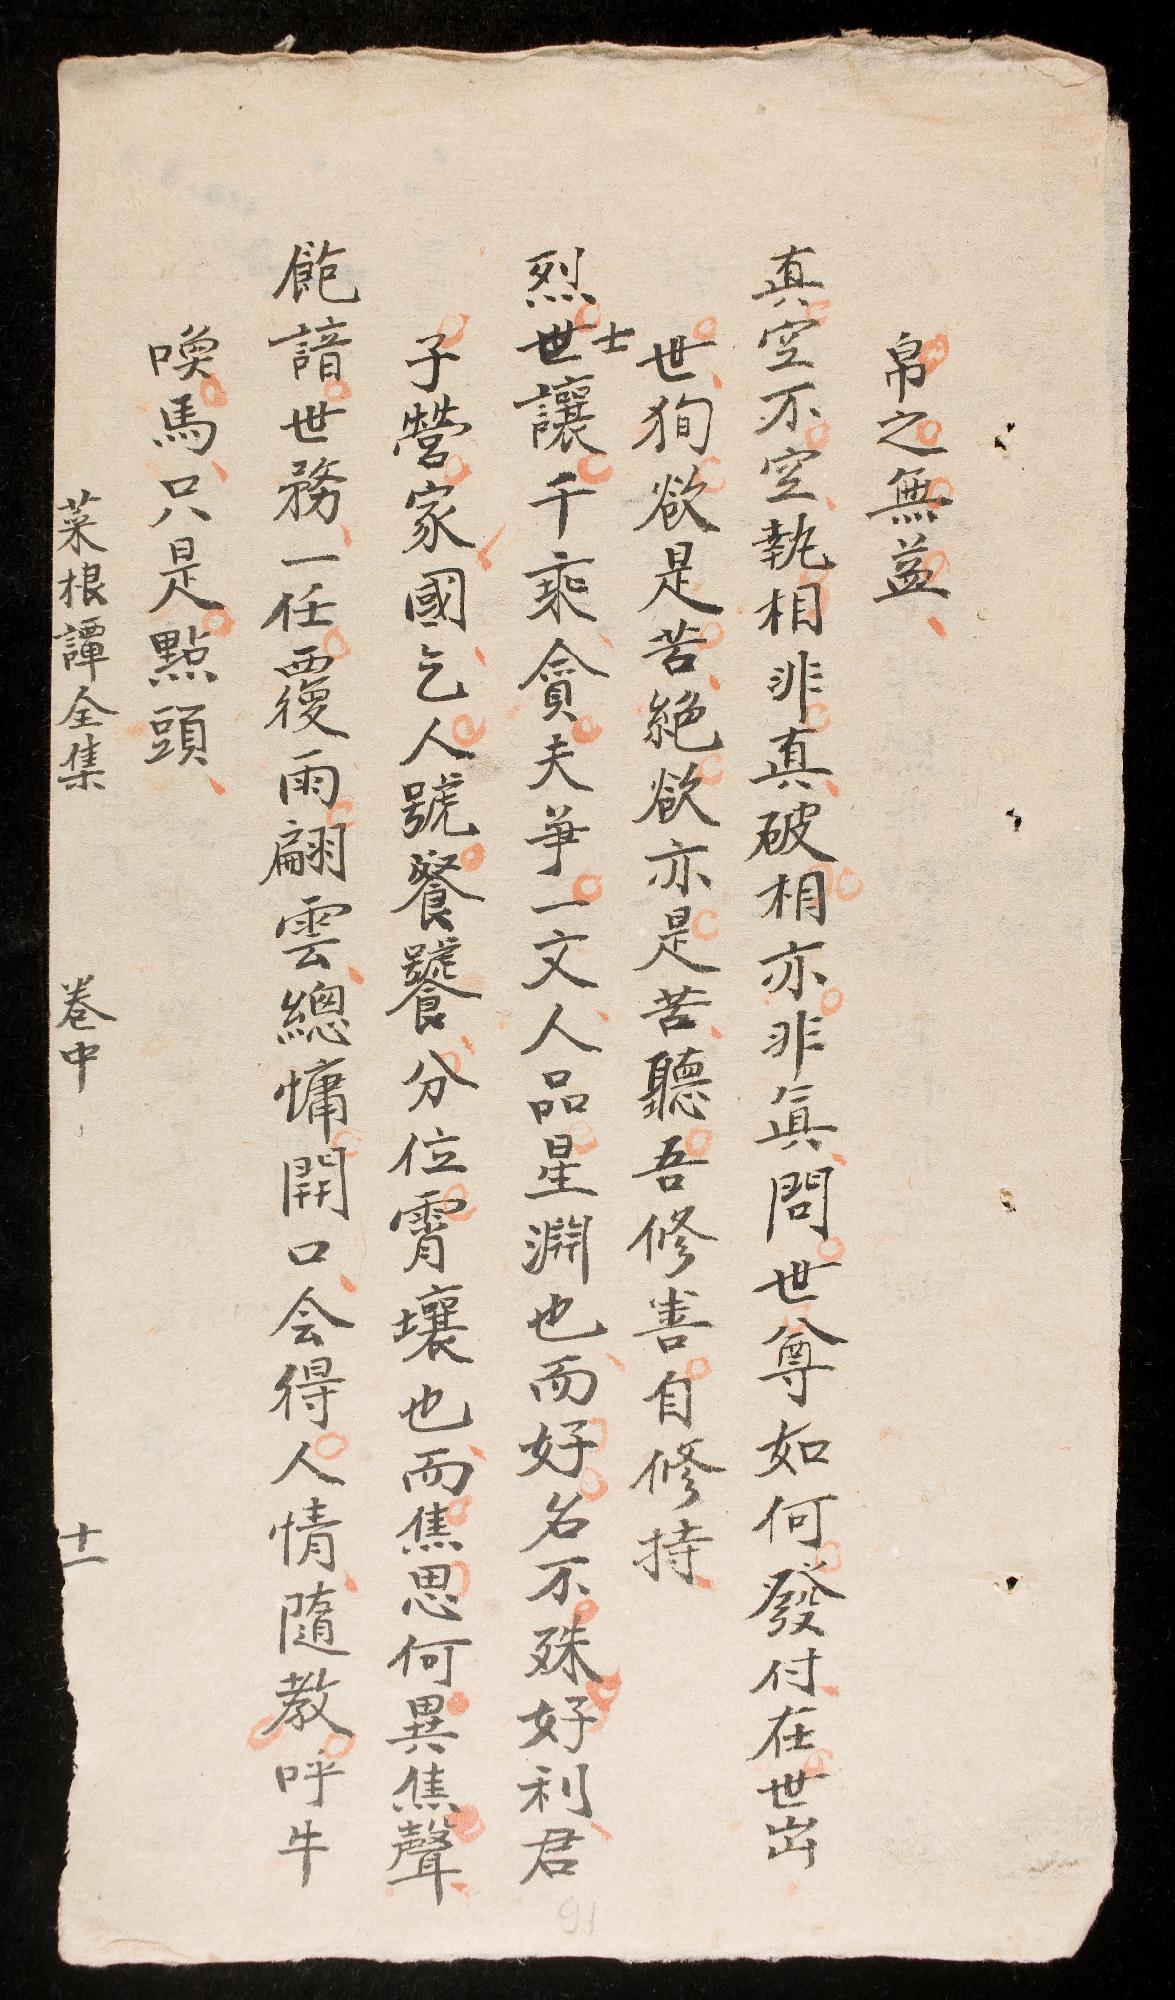 帛之無益
真空不空執相非真破相亦非真問世尊如何發付在世出
世狥欲是苦絶欲亦是苦聽吾修善自修持
烈世士讓千乘貪夫爭一文人品星淵也而好名不殊好利君
子營家國乞人號餐饔分位霄壤也而焦思何異焦聲
飽諳世務一任覆雨翩雲總慵開口会得人情隨教呼牛
喚馬只是㸃頭
菜根譚全集 卷中 十一
91